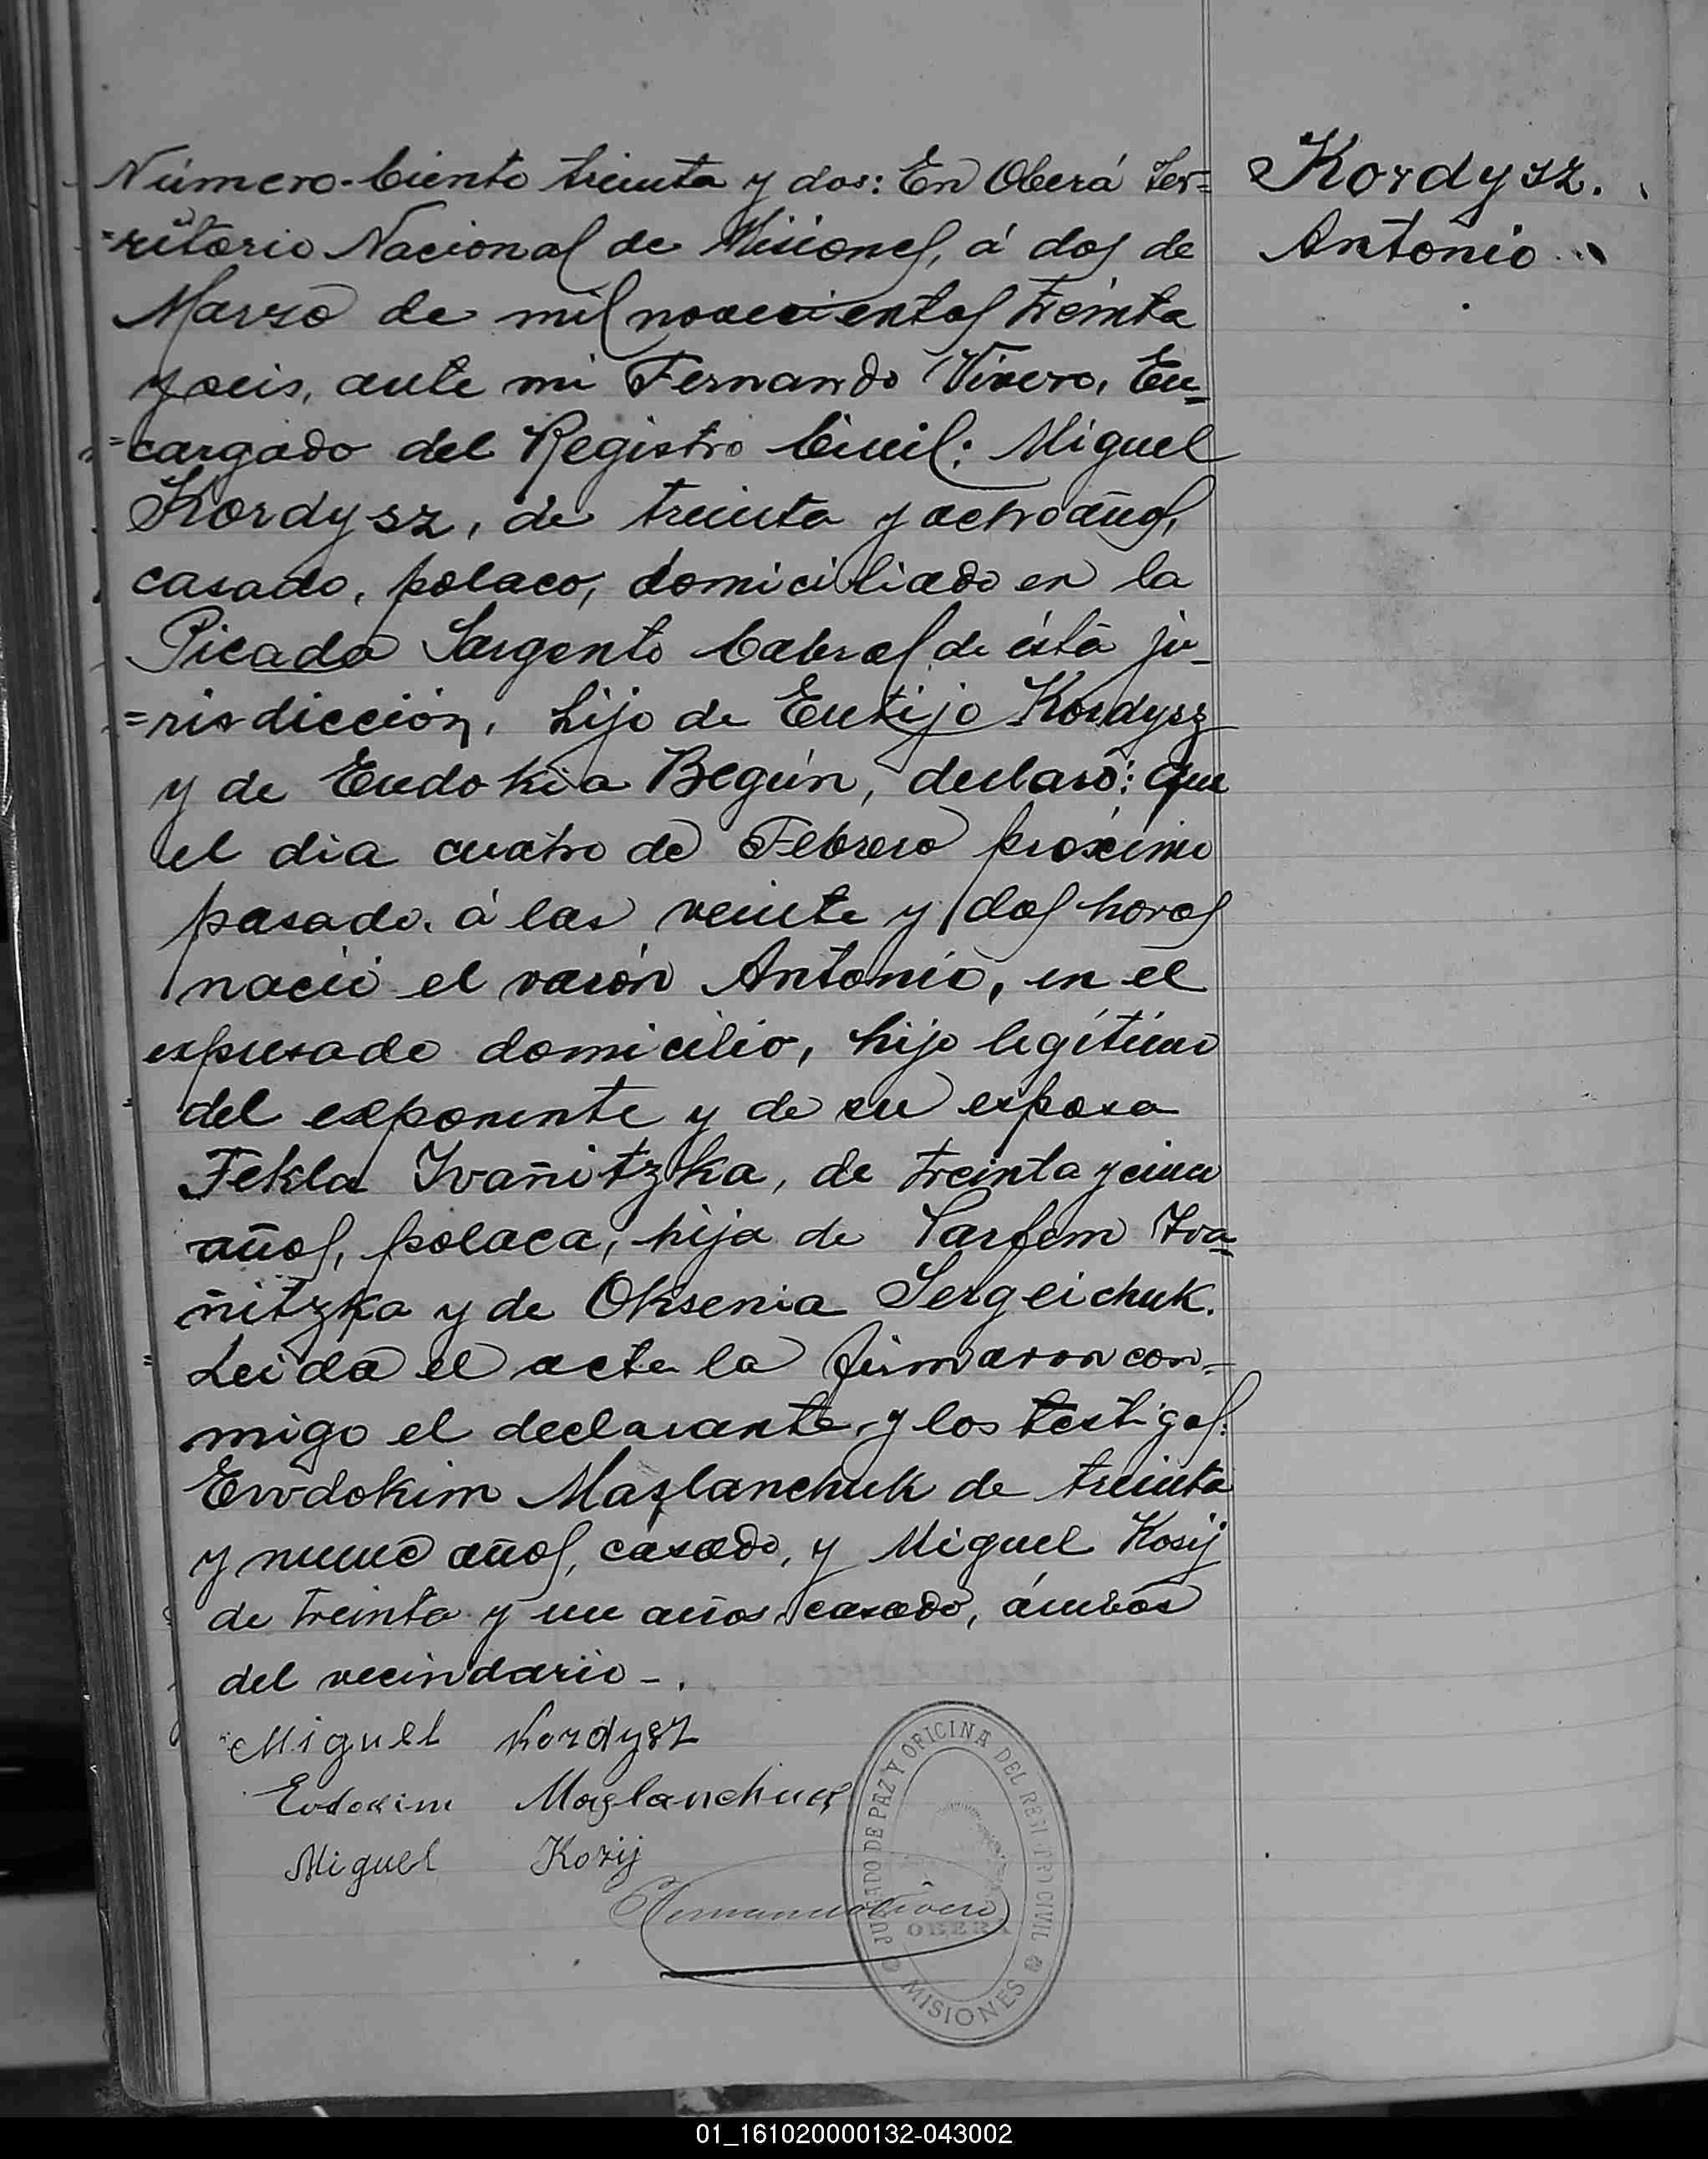 Número Ciento treinta y dos: En Oberá Ter=
=ritorio Nacional de Misiones, á dos de
Marzo de mil novecientos treinta
y seis, ante mi Fernando Vivero, En=
=cargado del Registro Civil: Miguel
Kordysz, de treinta y ocho años,
casado, polaco, domiciliado en la
Picada Sargento Cabral de ésta ju-
=risdicción, hijo de Eutijo Kordysz
y de Eudokia Begún, declaró: que
el dia cuatro de Febrero próximo
pasado. á las veinte y dos horas
nació el varón Antonio, en el
expresado domicilio, hijo legítimo
del exponente y de su esposa
Fekla Ivañitzka, de treinta y cinco
años, polaca, hija de Parfem Iva=
ñitzka y de Oksenia Sergeichuk.
Leida el acta la firmaron con-
migo el declarante y los testigos:
Evvdokim Mazlanchuk de treinta
y nueve años, casado, y Miguel Kosij
de treinta y un años, casado, ámbos
del vecindario-.
Kordysz.
Antonio
Miguel Kordysz
Evdokim Mazlanchuk
Miguel Kozij
Fernando Vivero
JUZGADO DE PAZ Y OFICINA DEL REGISTRO CIVIL
OBERA
MISIONES
01_161020000132-043002